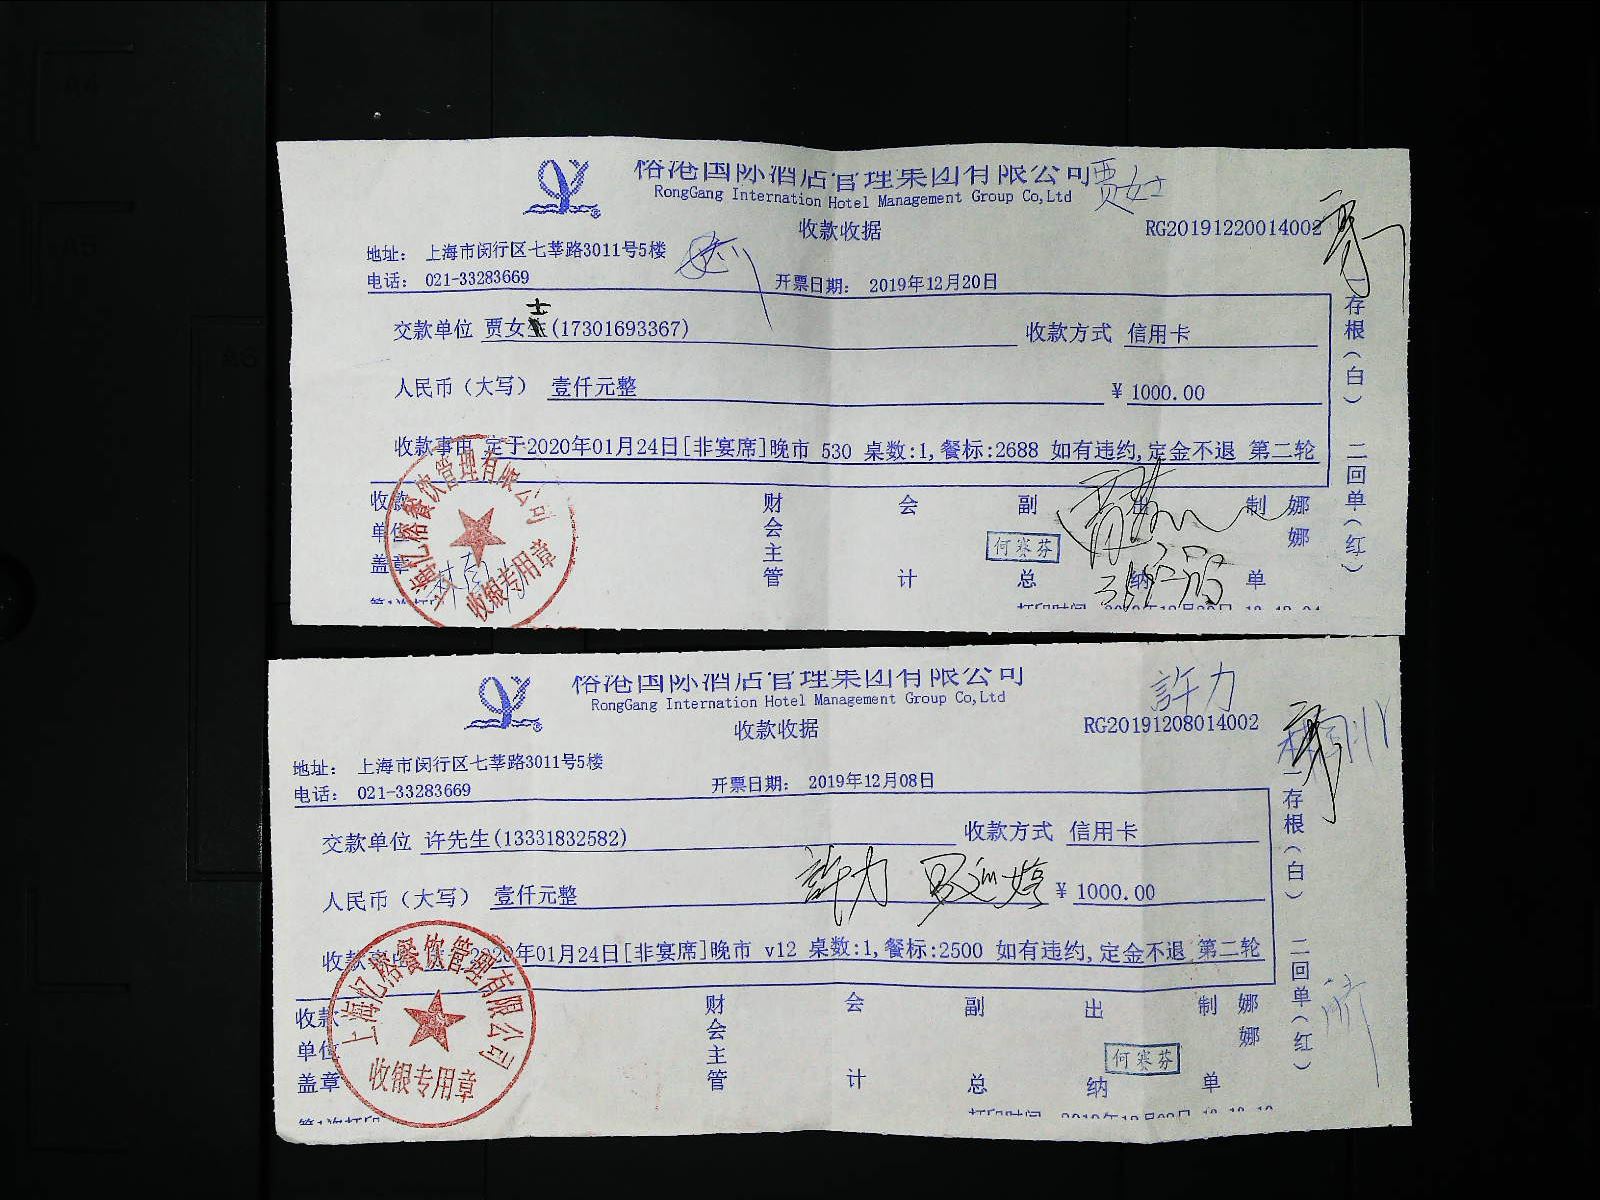 裕港国际酒店管理集团有限公司 贾女士
RongGang International Hotel Management Group Co,Ltd
收款收据
RG20191220014002
地址： 上海市闵行区七莘路3011号5楼
电话： 021-33283669
开票日期： 2019年12月20日
交款单位 贾女士(17301693367)
收款方式 信用卡
人民币（大写） 壹仟元整
¥ 1000.00
收款事由 定于2020年01月24日[非宴席]晚市 530 桌数:1,餐标:2688 如有违约,定金不退 第二轮
一存根（白） 二回单（红）
收款单位盖章
财会主管
会计
副总
出纳
制单
娜娜
何寒芬
上海忆裕餐饮管理有限公司
收银专用章
裕港国际酒店管理集团有限公司
RongGang International Hotel Management Group Co,Ltd
許力
收款收据
RG20191208014002
地址： 上海市闵行区七莘路3011号5楼
电话： 021-33283669
开票日期： 2019年12月08日
交款单位 许先生(13331832582)
收款方式 信用卡
人民币（大写） 壹仟元整
許力
¥ 1000.00
收款 2020年01月24日[非宴席]晚市 v12 桌数:1,餐标:2500 如有违约,定金不退 第二轮
一存根（白） 二回单（红）
收款单位盖章
财会主管
会计
副总
出纳
制单
娜娜
何寒芬
上海忆裕餐饮管理有限公司
收银专用章